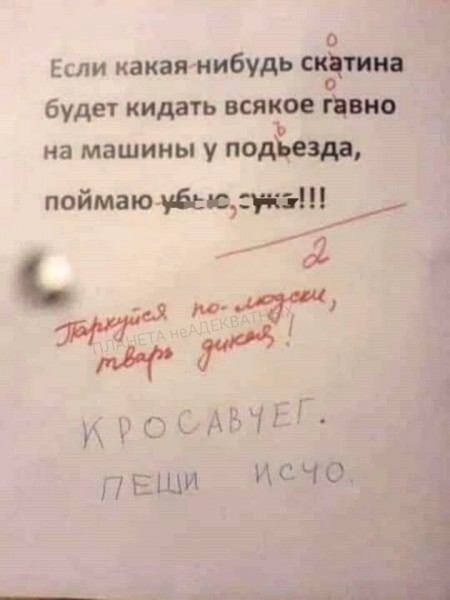 Если какая-нибудь скатина
о
будет кидать всякое гавно
о
на машины у подьезда,
ъ
поймаю убью, сука!!!
2
Паркуйся по-людски,
тварь дикая!
ПЛАНЕТА неАДЕКВАТНЫХ
КРОСАВЧЕГ.
ПЕШИ ИСЧО.